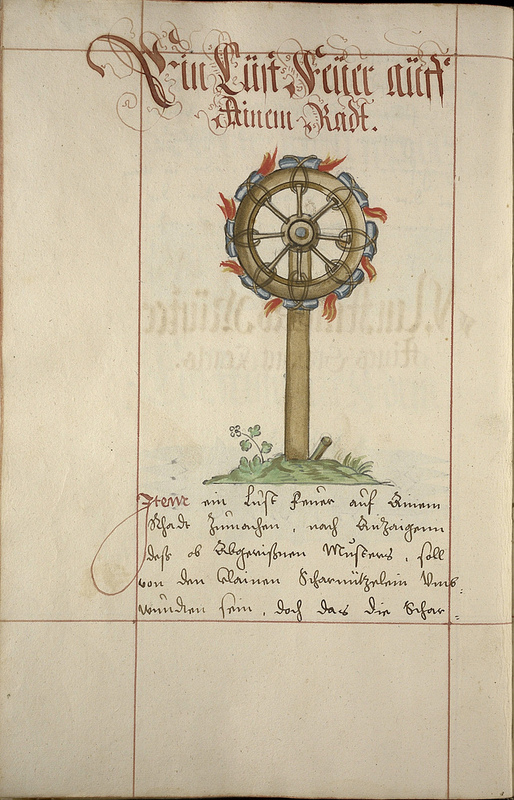 Ein Lust Feuer auff
Ainem Radt.
Item ein Lust Feuer auf Ainem
Rhadt Zumachen, nach Anzaigenn
deß ob Abgerißnen Musters, soll
von den Klainen Scharmützelein Umb=
wunden sein, doch das die Schar=